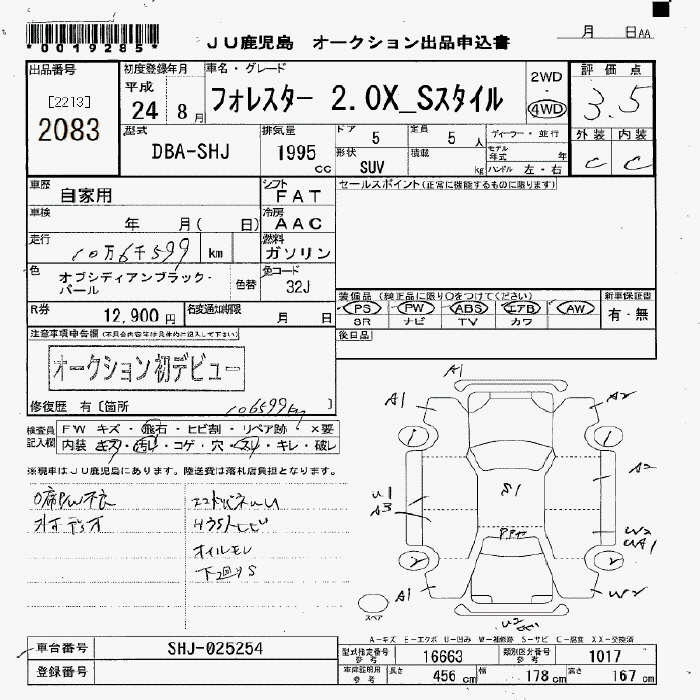 *0019285*
JU鹿児島 オークション出品申込書
月 日AA
出品番号
[2213]
2083
初度登録年月
平成
24 8月
車名・グレード
フォレスター 2.0X_Sスタイル
2WD
・
4WD
評価点
3.5
外装 内装
C C
型式
DBA-SHJ
排気量
1995
cc
ドア 5
定員 5人
形状
SUV
積載
kg
ディーラー・並行
モデル年式 年
ハンドル 左・右
車歴
自家用
シフト
FAT
車検
年 月( 日)
冷房
AAC
走行
10万6千599 km
燃料
ガソリン
色
オブシディアンブラック・パール
色替
色コード
32J
R券
12,900円
名変通知期限
月 日
セールスポイント(正常に機能するものに限ります)
装備品(純正品に限り○をつけてください)
PS PW ABS エアB AW
SR ナビ TV カワ
新車保証書
有・無
後日品
注意事項申告欄(不具合内容等は具体的に記入して下さい)
オークション初デビュー
修復歴 有[箇所 ]
106599km
検査員記入欄
FW キズ・飛石・ヒビ割・リペア跡・×要
内装 キズ・汚れ・コゲ・穴・スレ・キレ・破レ
※現車はJU鹿児島にあります。陸送費は落札店負担となります。
オイルモレ
下回りS
A1
A1 A2
1 1
A2
U1
A3
S1
W2
UA1
2 2
A1 W2
U2
スペア
A-キズ E-エクボ U-凹み W-補修跡 S-サビ C-腐食 XX-交換済
車台番号 SHJ-025254
登録番号
型式指定番号 参考 16663
類別区分番号 参考 1017
車庫証明用 参考 長さ 456cm 幅 178cm 高さ 167cm